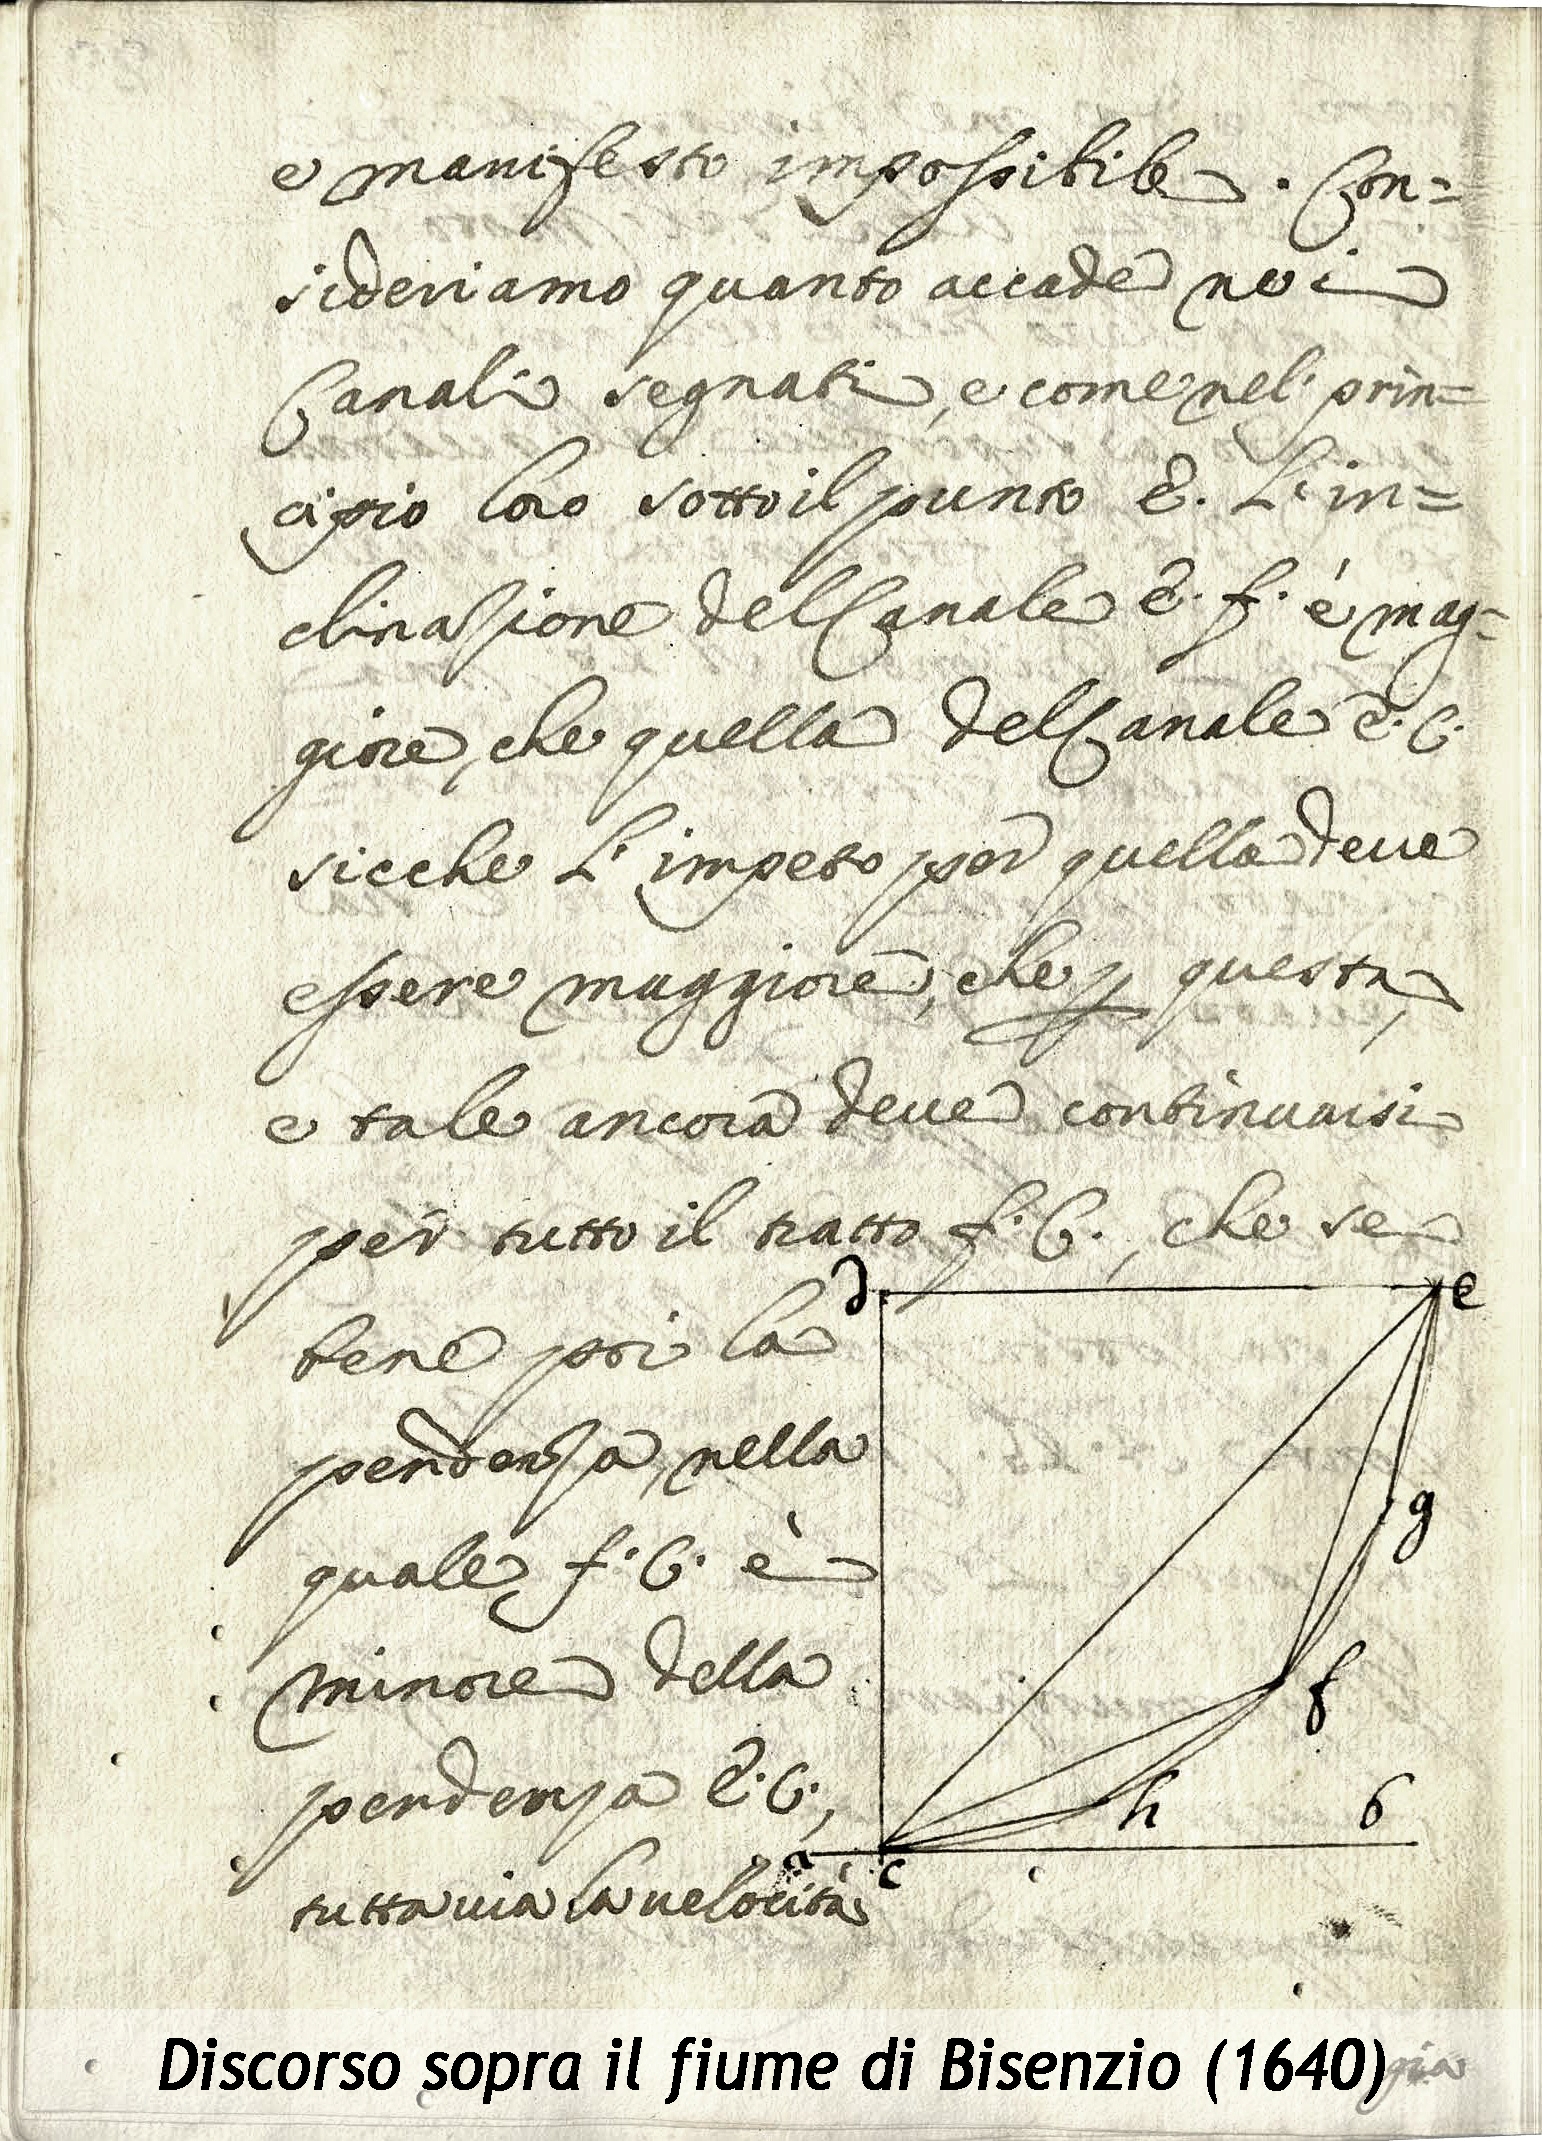 e manifesto impossibile. Con=
sideriamo quanto accade nei
Canali segnati, e come nel prin=
cipio loro sotto il punto E. L'in=
clinazione del Canale E. f. è mag=
giore, che quella del Canale E. C.
sicche L'impeto per quella deue
essere maggiore, che p questa,
e tale ancora deue continuarsi
per tutto il tratto f. C., che se
bene poi la
pendenza, nella
quale f. C. è
minore della
pendenza E. C.,
tuttauia la uelocità
d
e
g
f
h
b
a
c
Discorso sopra il fiume di Bisenzio (1640)
gia